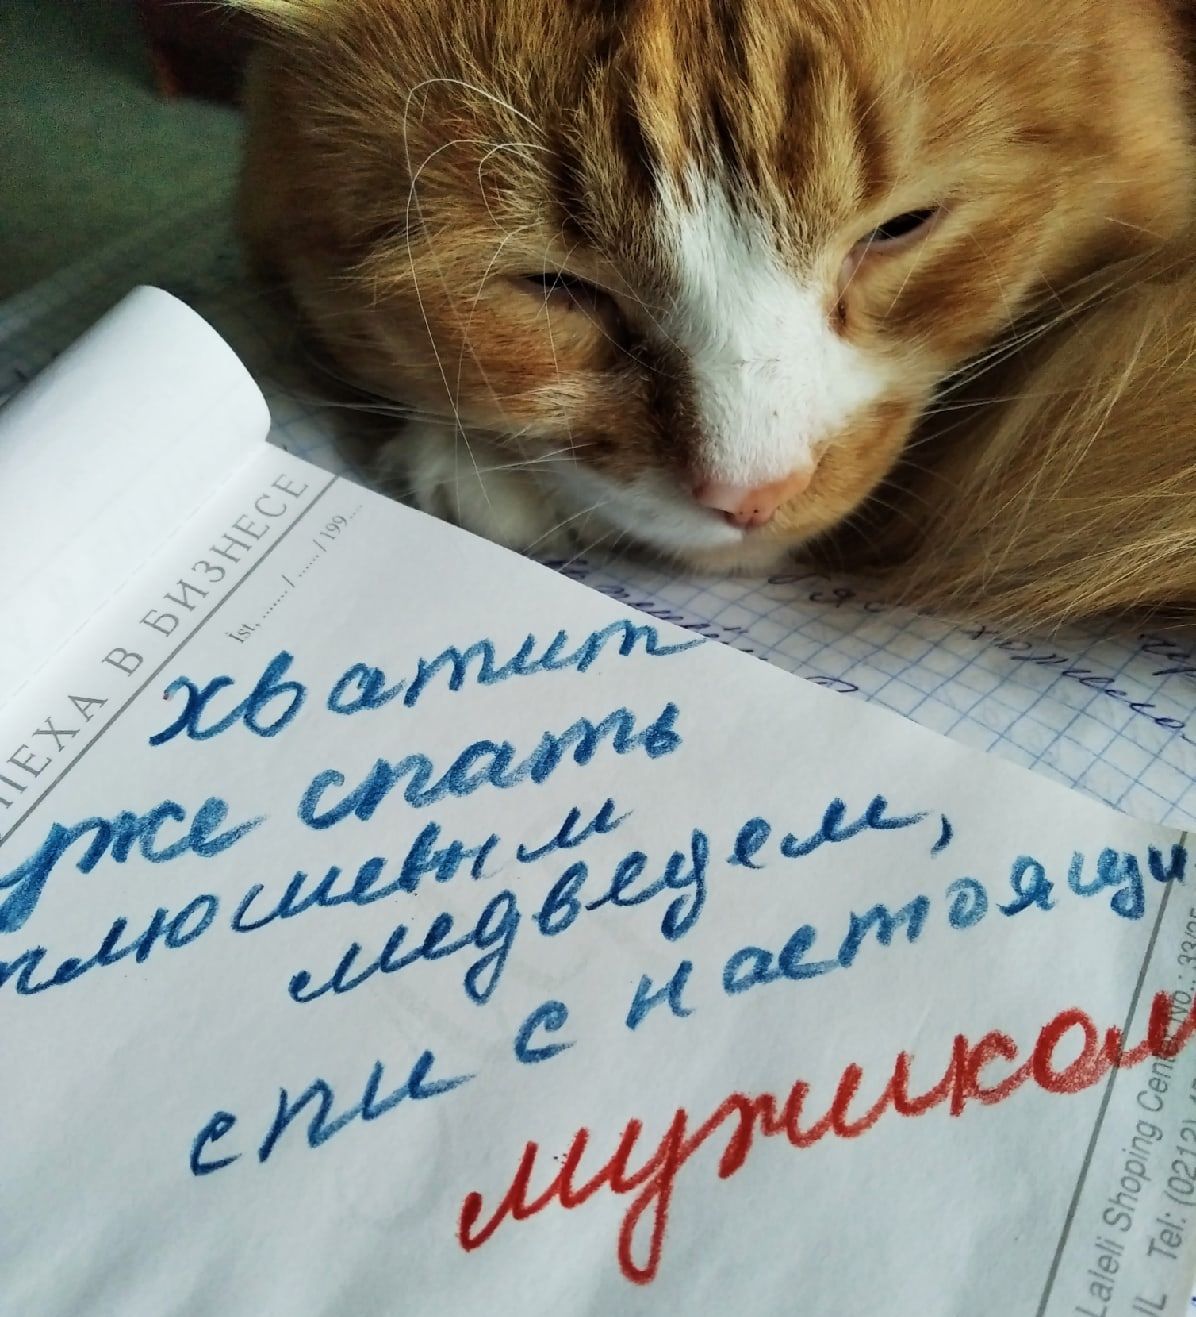 ПЕХА В БИЗНЕСЕ
Ist, ....... / ...... / 199....
хватит
уже спать
плюшевым
медведем,
спи с настоящи
мужиком
Laleli Shopping Center No.: 33/
Tel: (0212)